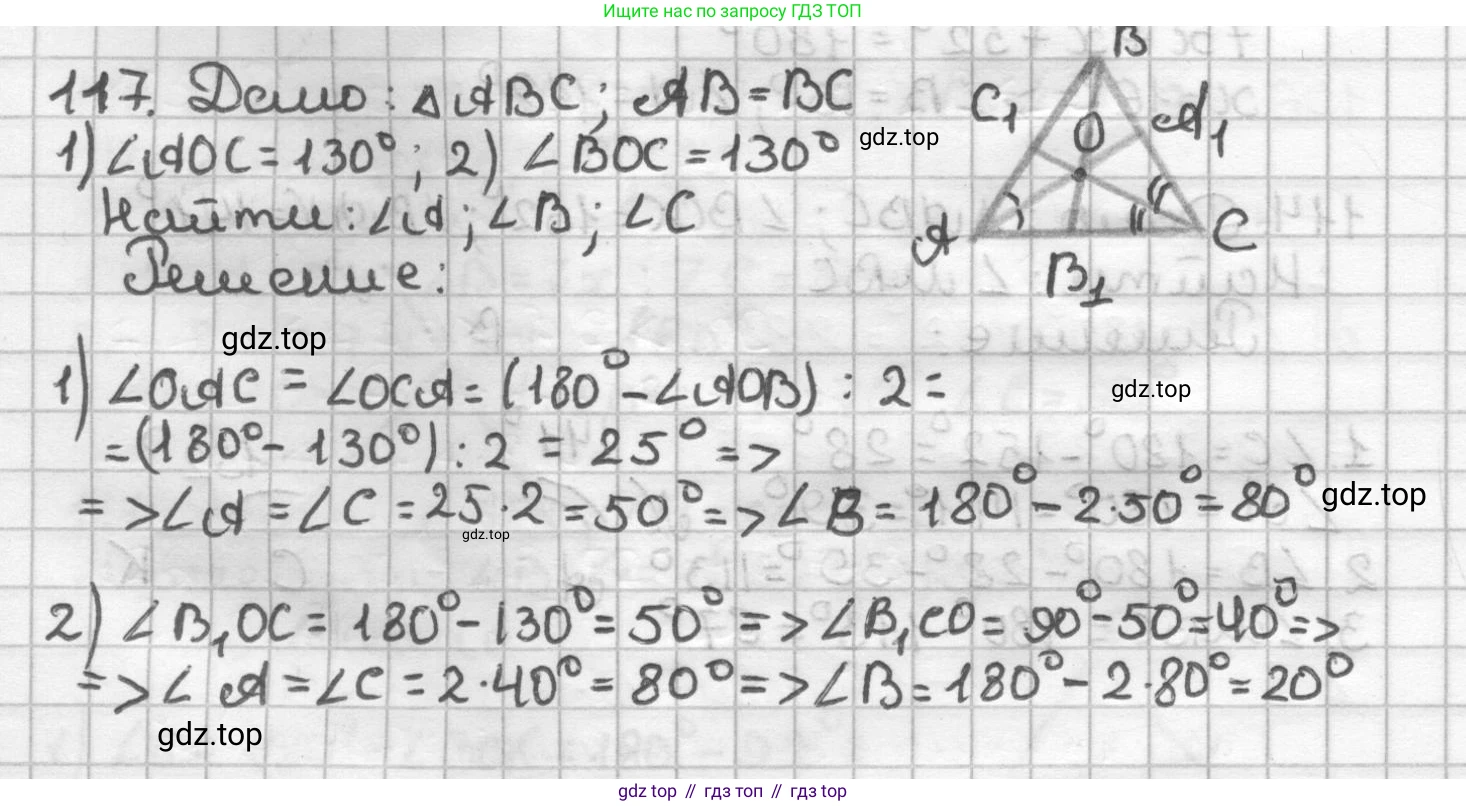 Ищите нас по запросу ГДЗ ТОП
117. Дано: △ABC; AB=BC
1) ∠AOC=130°; 2) ∠BOC=130°
gdz.top
Найти: ∠A; ∠B; ∠C
Решение:
B
C₁
A₁
O
A
C
B₁
gdz.top
1) ∠OAC = ∠OCA = (180° - ∠AOB) : 2 =
gdz.top
= (180° - 130°) : 2 = 25° =>
=> ∠A = ∠C = 25·2 = 50° => ∠B = 180° - 2·50° = 80°
gdz.top
gdz.top
2) ∠B₁OC = 180° - 130° = 50° => ∠B₁CO = 90° - 50° = 40° =>
=> ∠A = ∠C = 2·40° = 80° => ∠B = 180° - 2·80° = 20°
gdz.top
gdz top // гдз топ // gdz top